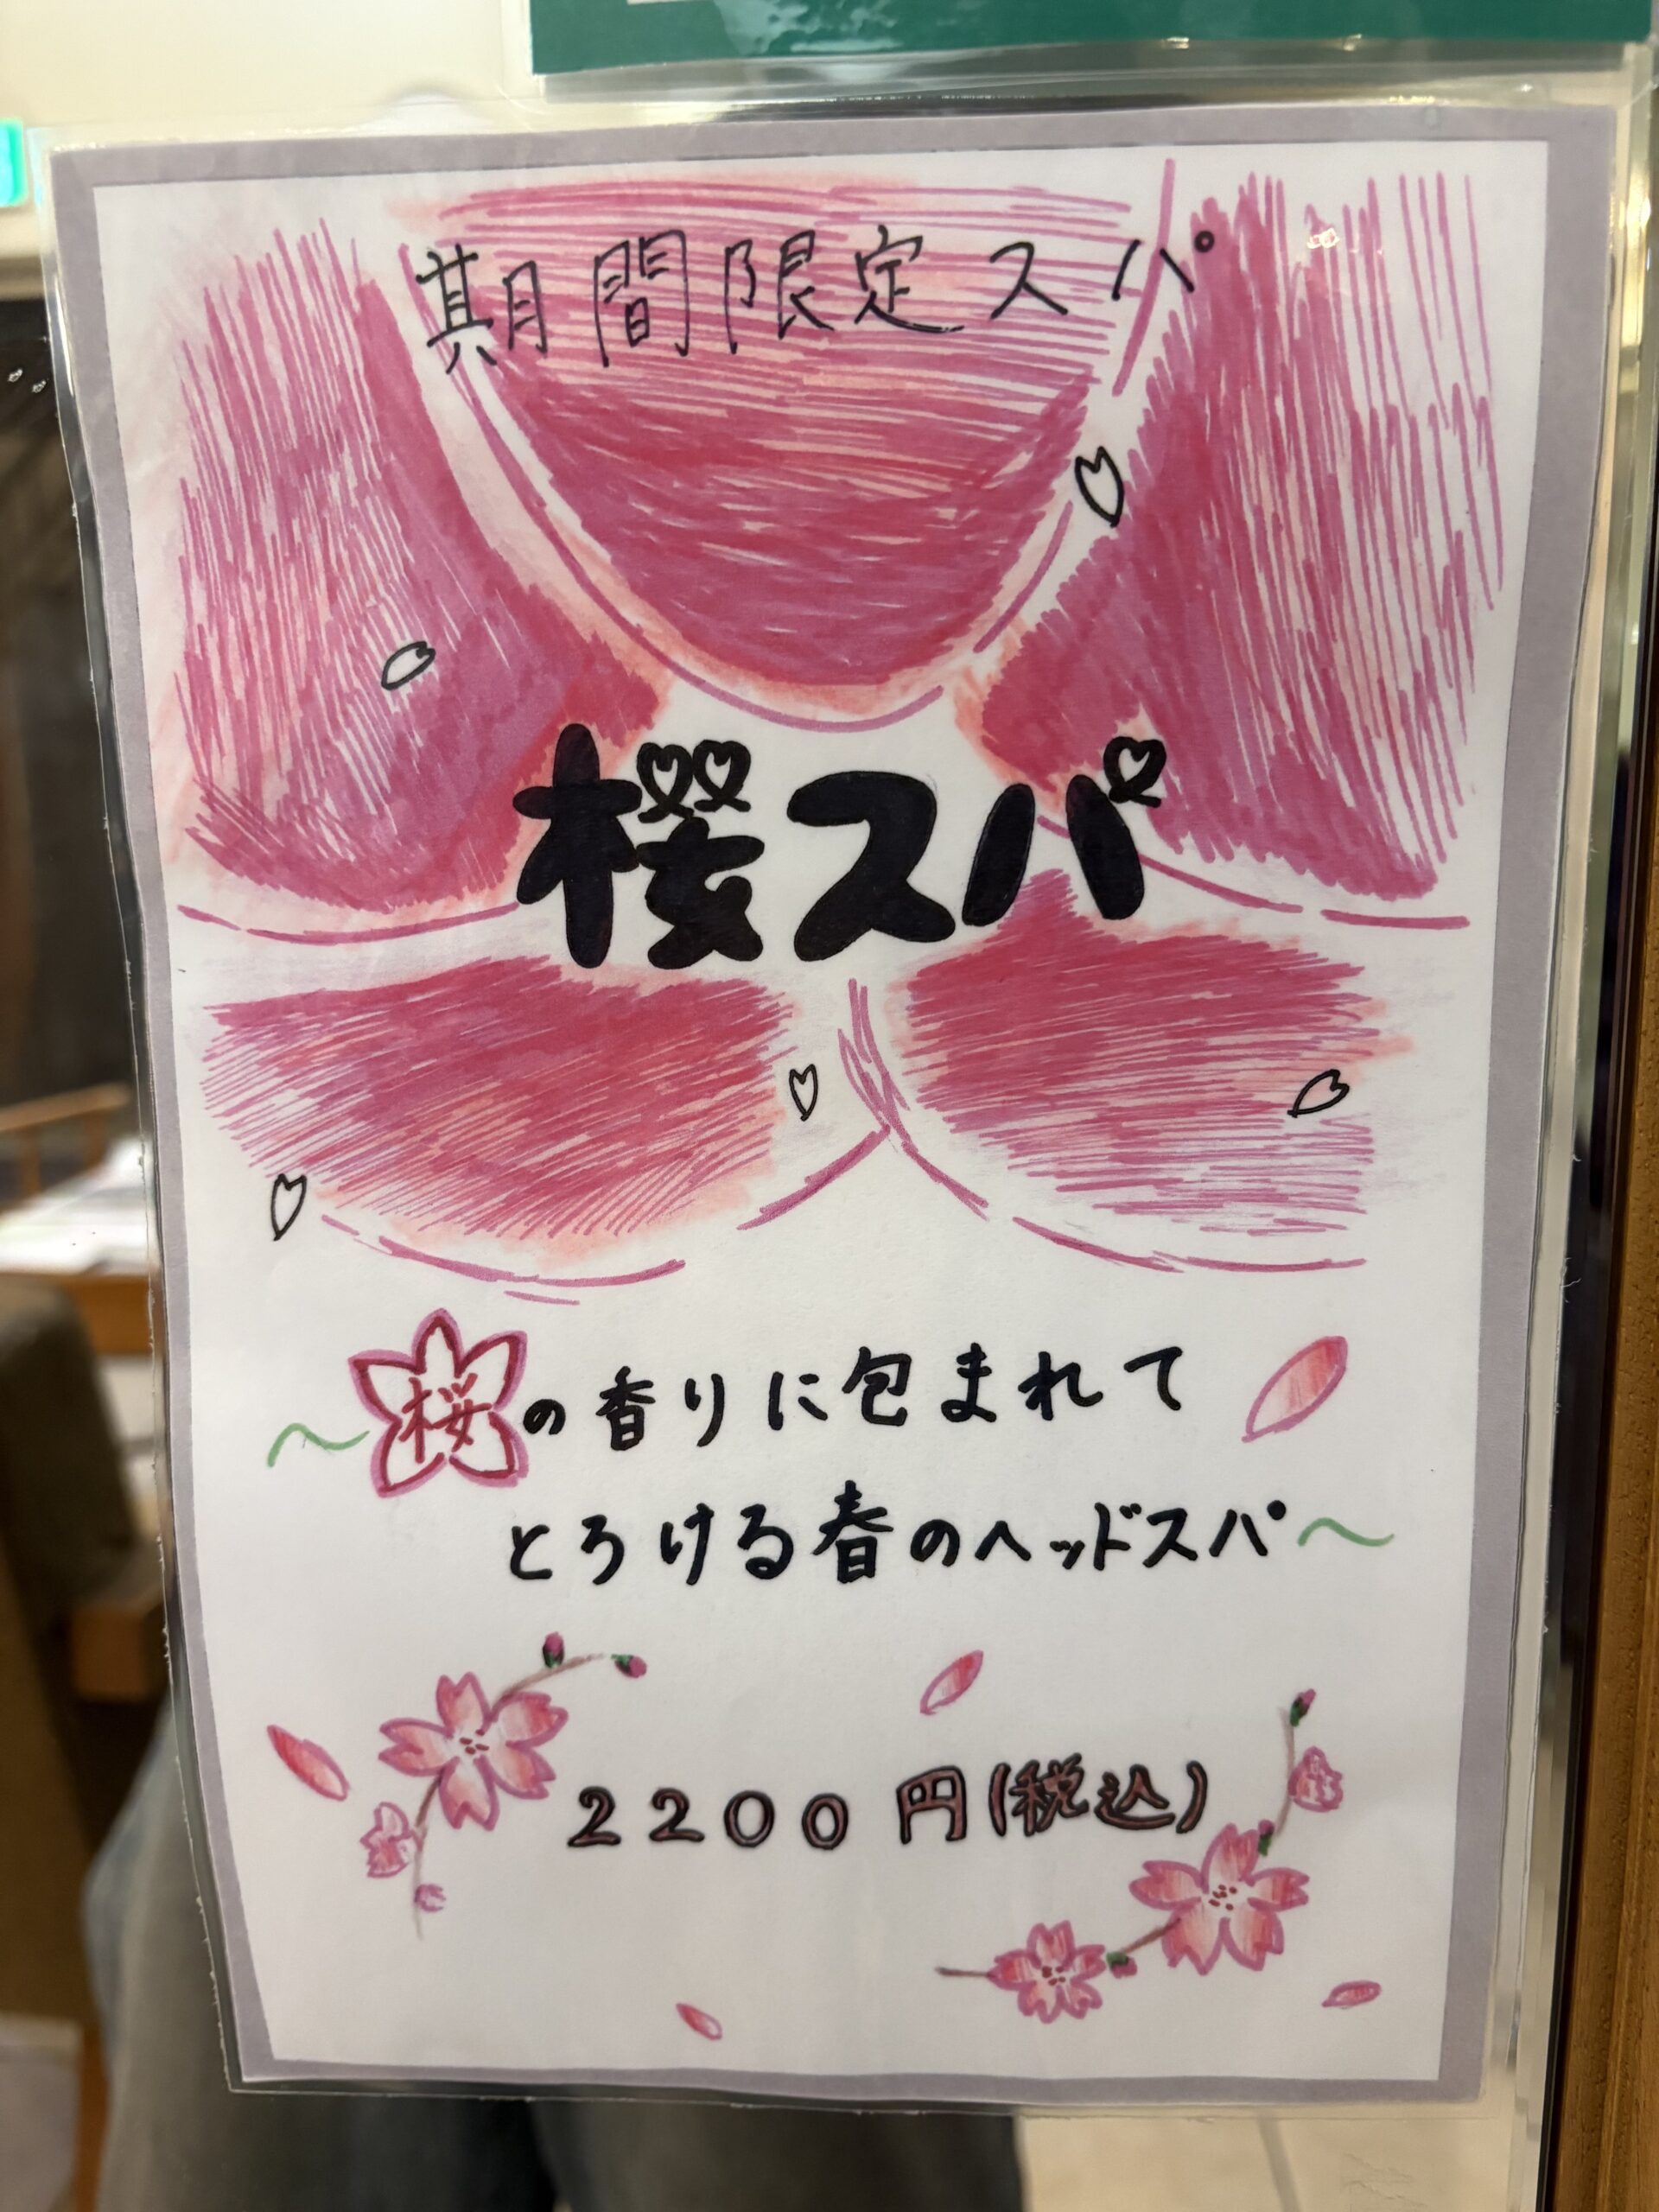 期間限定スパ
桜スパ
～桜の香りに包まれて
とろける春のヘッドスパ～
2200円(税込)